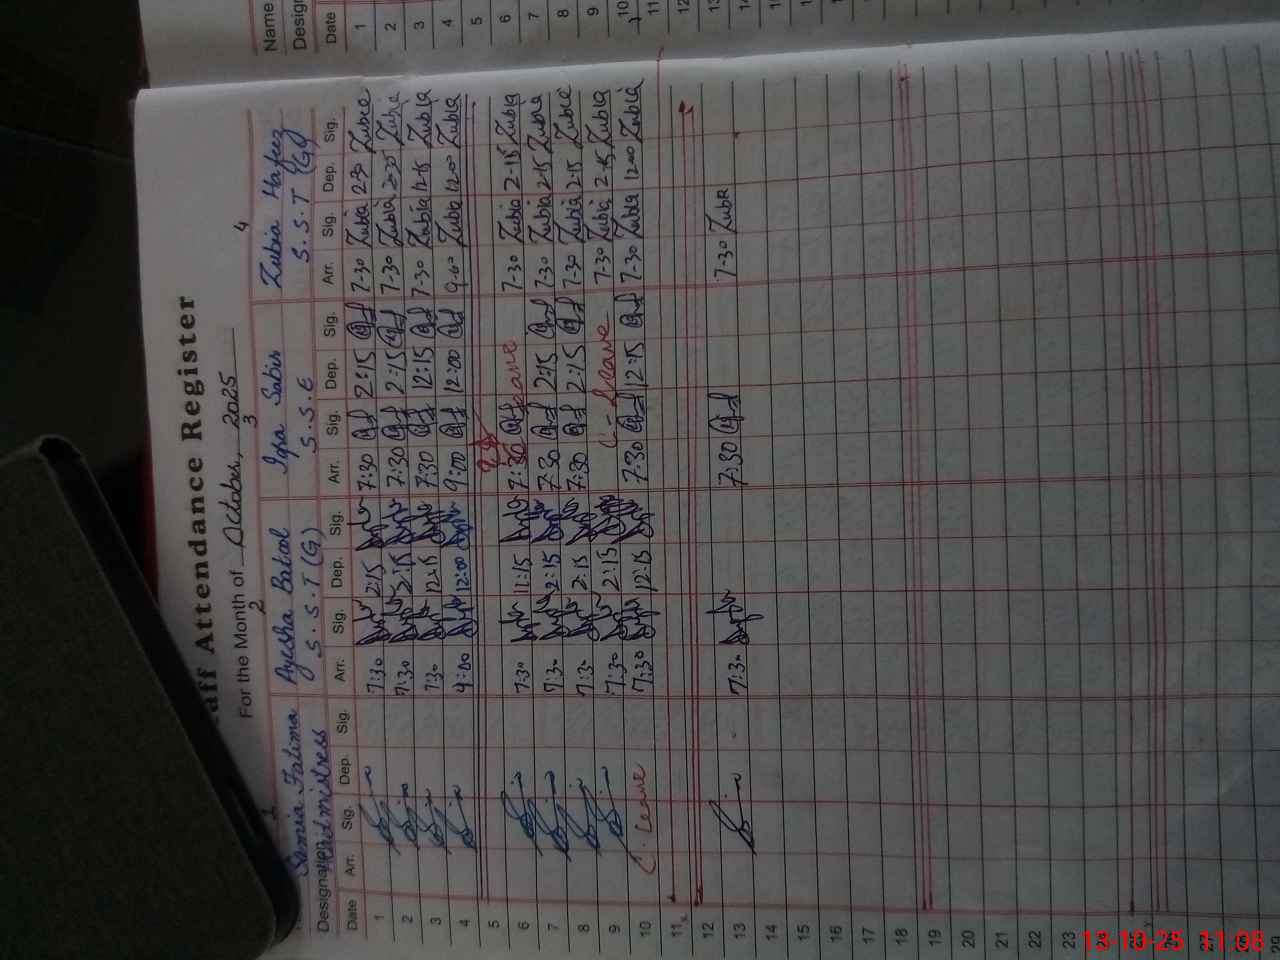 aff Attendance Register
For the Month of October, 2025
1 2 3 4
Samia Fatima Ayesha Batool Iqra Sabir Zubia Hafeez
Headmistress S.S.T (G) S.S.E S.S.T (G)
Date Arr. Sig. Dep. Sig. Arr. Sig. Dep. Sig. Arr. Sig. Dep. Sig. Arr. Sig. Dep. Sig.
1 7:30 2:15 7:30 2:15 7-30 Zubia 2-30 Zubia
2 7:30 2:15 7:30 2:15 7-30 Zubia 2-30 Zubia
3 7:30 12:15 7:30 12:15 7-30 Zubia 12-15 Zubia
4 9:00 12:00 9:00 12:00 9-00 Zubia 1200 Zubia
5
6 7:30 11:15 7:30 Leave 7-30 Zubia 2-15 Zubia
7 7:30 2:15 7:30 2:15 7-30 Zubia 2-15 Zubia
8 7:30 2:15 7:30 2:15 7-30 Zubia 2-15 Zubia
9 7:30 2:15 C-Leave 7-30 Zubia 2-15 Zubia
10 C. Leave 7:30 12:15 7:30 12:15 7-30 Zubia 1200 Zubia
11
12
13 7:30 7:30 7-30 Zubia
14
15
16
17
18
19
20
21
22
23
24
26
27
28
29
Name
Design
Date
1
2
3
4
5
6
7
8
9
10
11
12
13
14
13-10-25 11:08